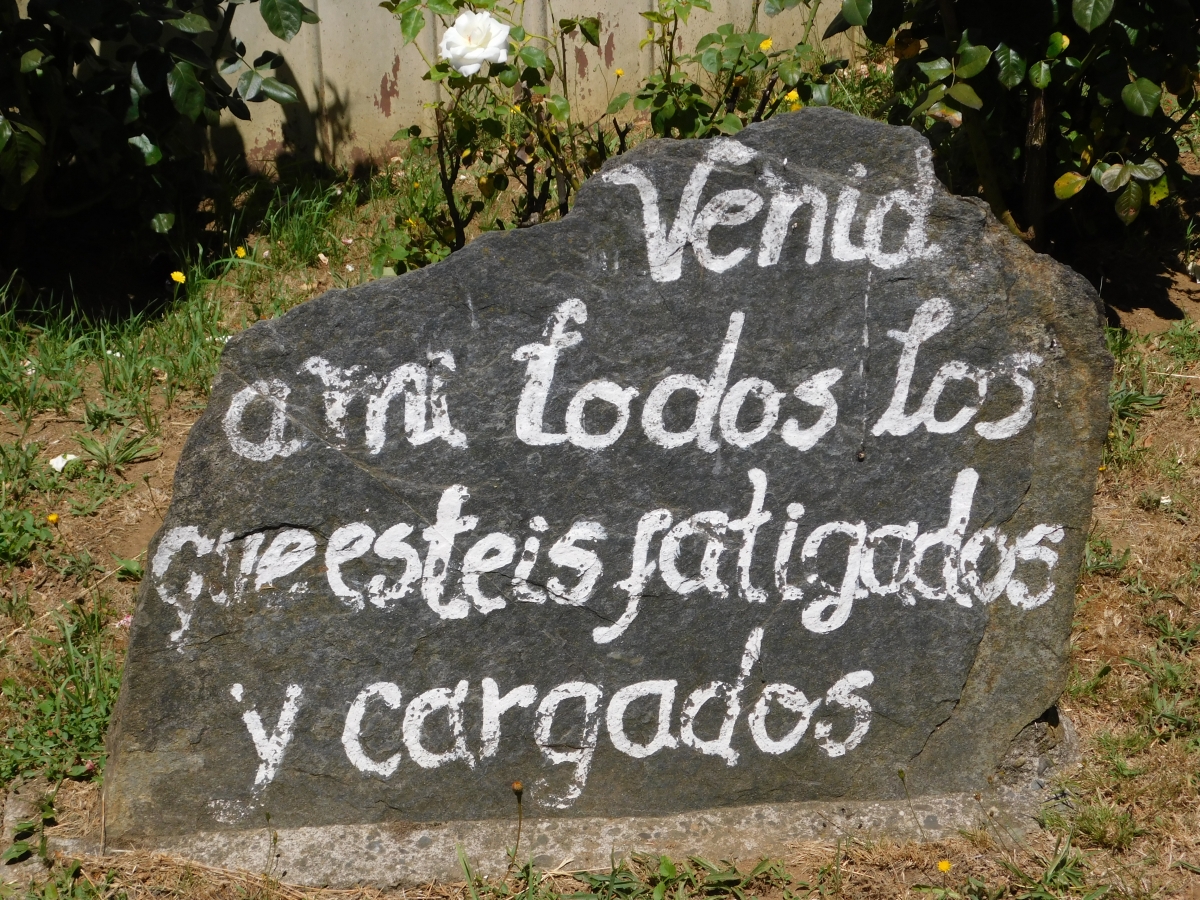 Venid
a mi todos los
que esteis fatigados
y cargados